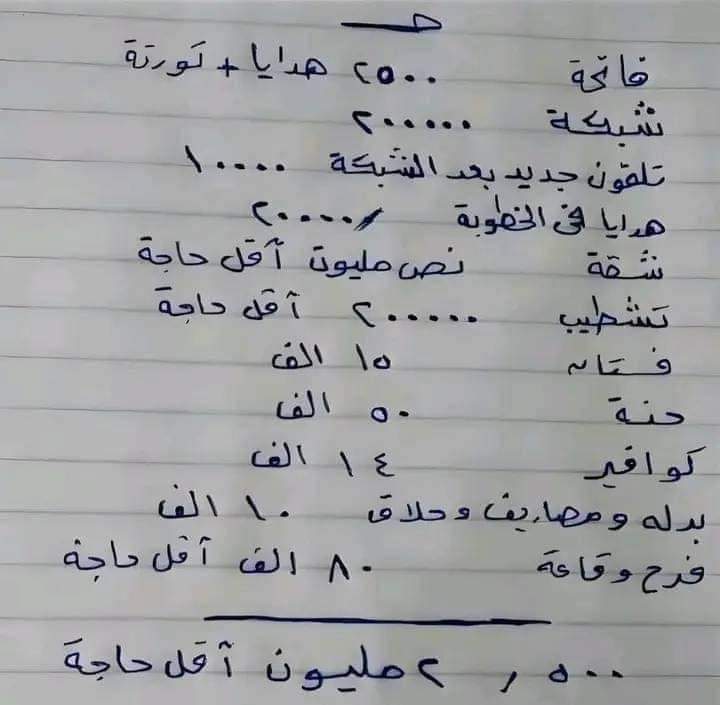 فاتحة ٢٥٠٠ هدايا + تورتة
شبكة ٢٠٠٠٠٠
تلفون جديد بعد الشبكة ١٠٠٠٠
هدايا فى الخطوبة ٢٠٠٠٠
شقة نص مليون آقل حاجة
تشطيب ٢٠٠٠٠٠ آقل حاجة
فستان ١٥ الف
حنة ٥٠ الف
كوافير ١٤ الف
بدله ومصاريف وحلاق ١٠ الف
فرح وقاعة ٨٠ الف آقل حاجة
٢,٥٠٠ مليون آقل حاجة